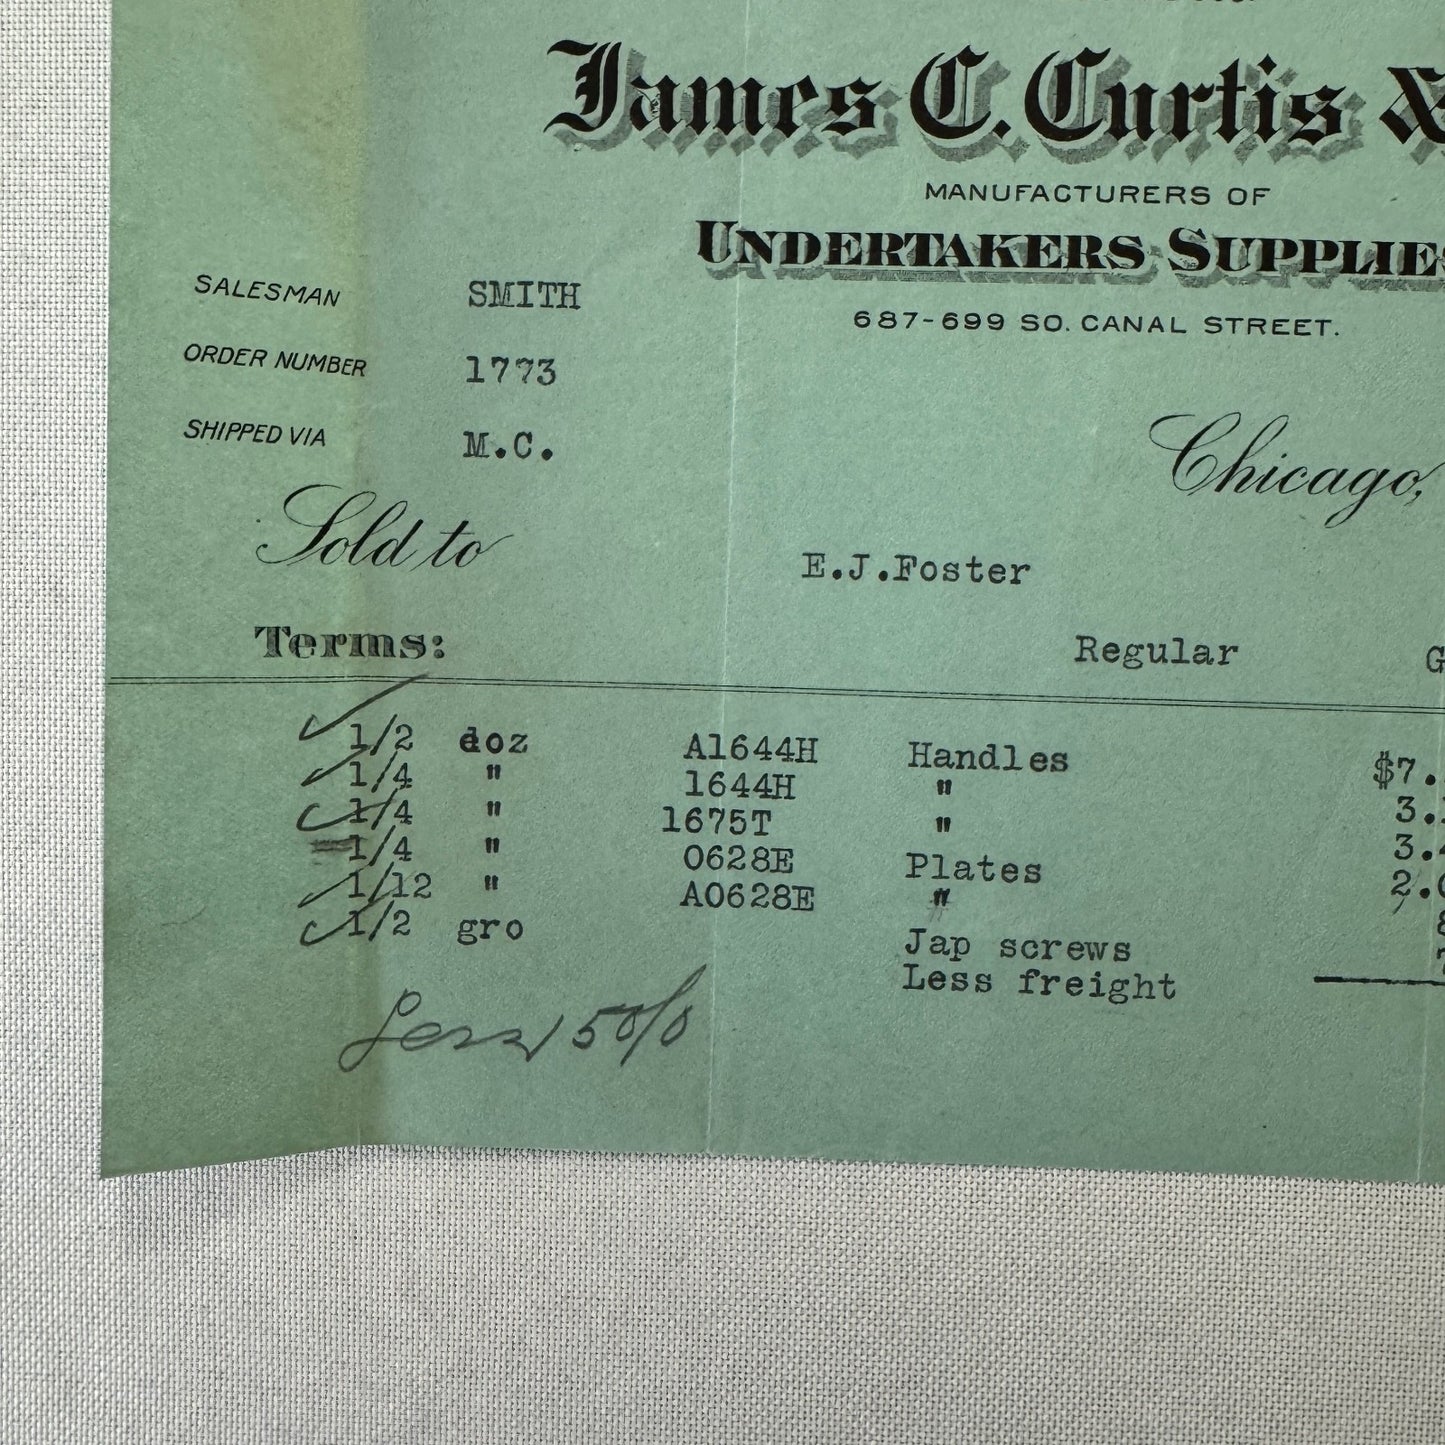 James C. Curtis &
MANUFACTURERS OF
UNDERTAKERS SUPPLIES
687-699 SO. CANAL STREET.
SALESMAN SMITH
ORDER NUMBER 1773
SHIPPED VIA M.C.
Chicago,
Sold to E.J.Foster
Terms: Regular G
1/2 doz A1644H Handles $7.
1/4 " 1644H " 3.
1/4 " 1675T " 3.
1/4 " 0628E Plates 2.
1/12 " A0628E "
1/2 gro Jap screws
Less freight
Less 5%